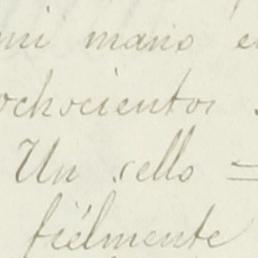 mi mano e
ochocientos
Un sello =
fiélmente